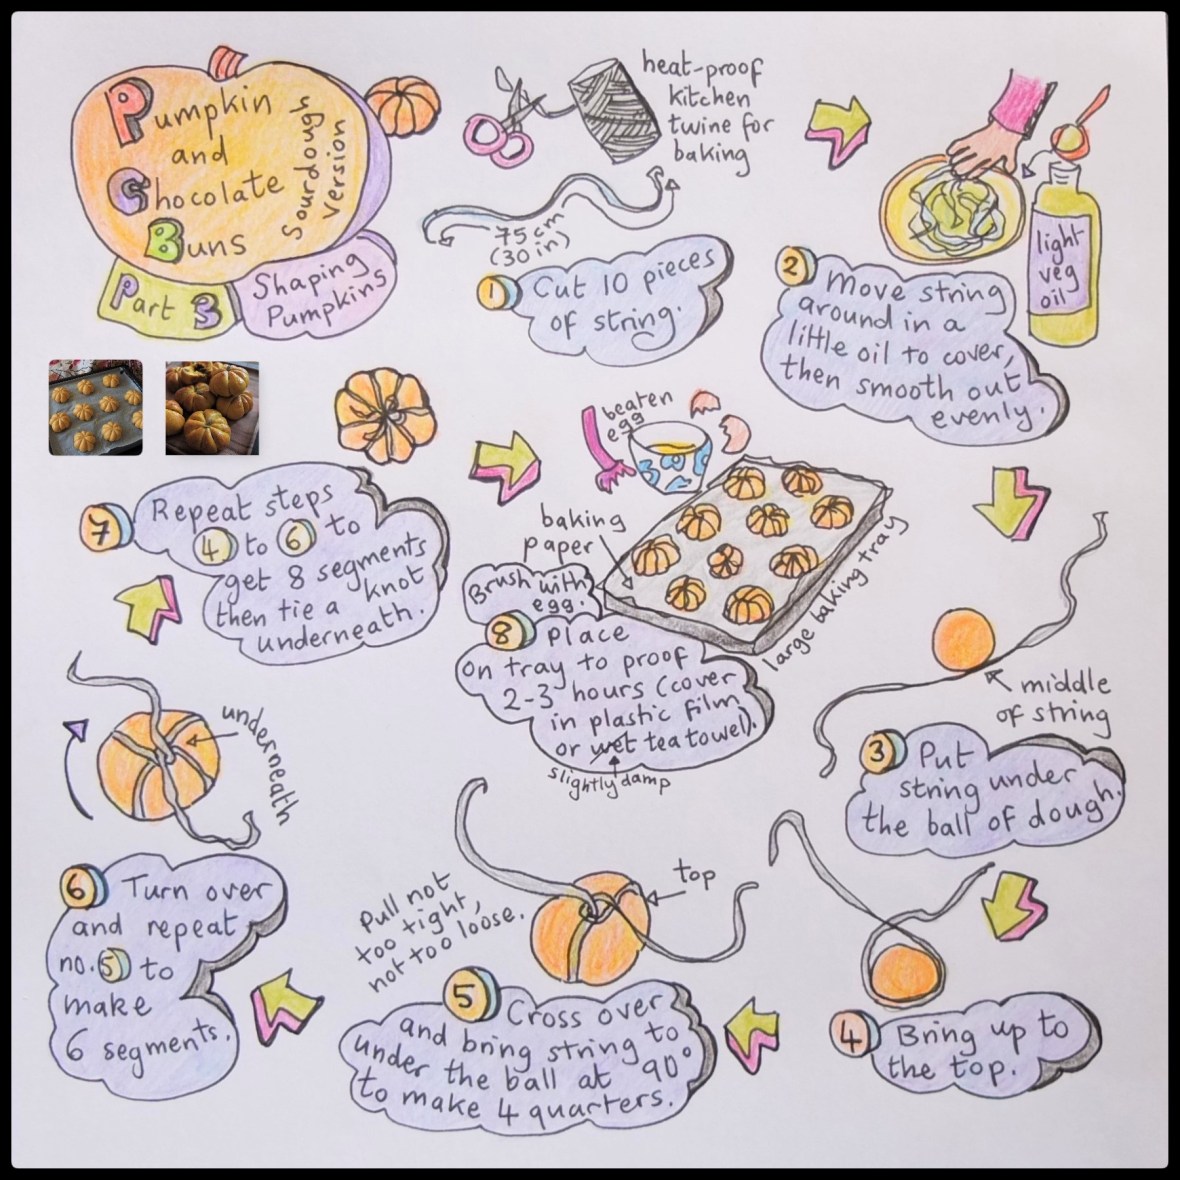 Pumpkin
and
Chocolate
Buns
Sourdough
version
Part 3
Shaping
Pumpkins
heat-proof
kitchen
twine for
baking
75 cm
(30 in)
1 Cut 10 pieces
of string.
light
veg
oil
2 Move string
around in a
little oil to cover,
then smooth out
evenly.
middle
of string
3 Put
string under
the ball of dough.
4 Bring up to
the top.
top
Pull not
too tight,
not too loose.
5 Cross over
and bring string to
under the ball at 90°
to make 4 quarters.
underneath
6 Turn over
and repeat
no. 5 to
make
6 segments.
7 Repeat steps
4 to 6 to
get 8 segments
then tie a knot
underneath.
beaten
egg
baking
paper
large baking tray
Brush with
egg.
8 Place
on tray to proof
2-3 hours (cover
in plastic film
or wet tea towel).
slightly damp